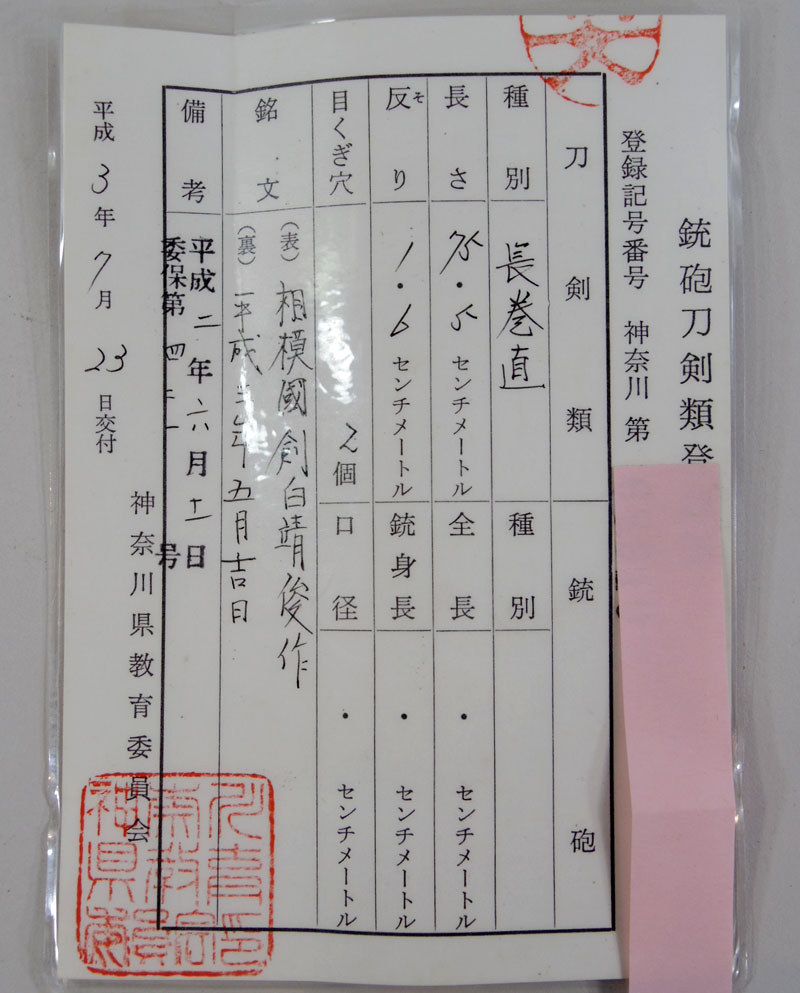 銃砲刀剣類登
登録記号番号 神奈川 第
刀剣類
銃砲
種別 長巻直
種別
長さ 75・5 センチメートル
全長 ・ センチメートル
反り そ 1・6 センチメートル
銃身長 ・ センチメートル
目くぎ穴 2個
口径 ・ センチメートル
銘文 (表) 相模國剣白靖俊作
(裏) 平成三年五月吉日
備考 平成二年六月十一日
委保第四二一号
平成3年7月23日交付
神奈川県教育委員会